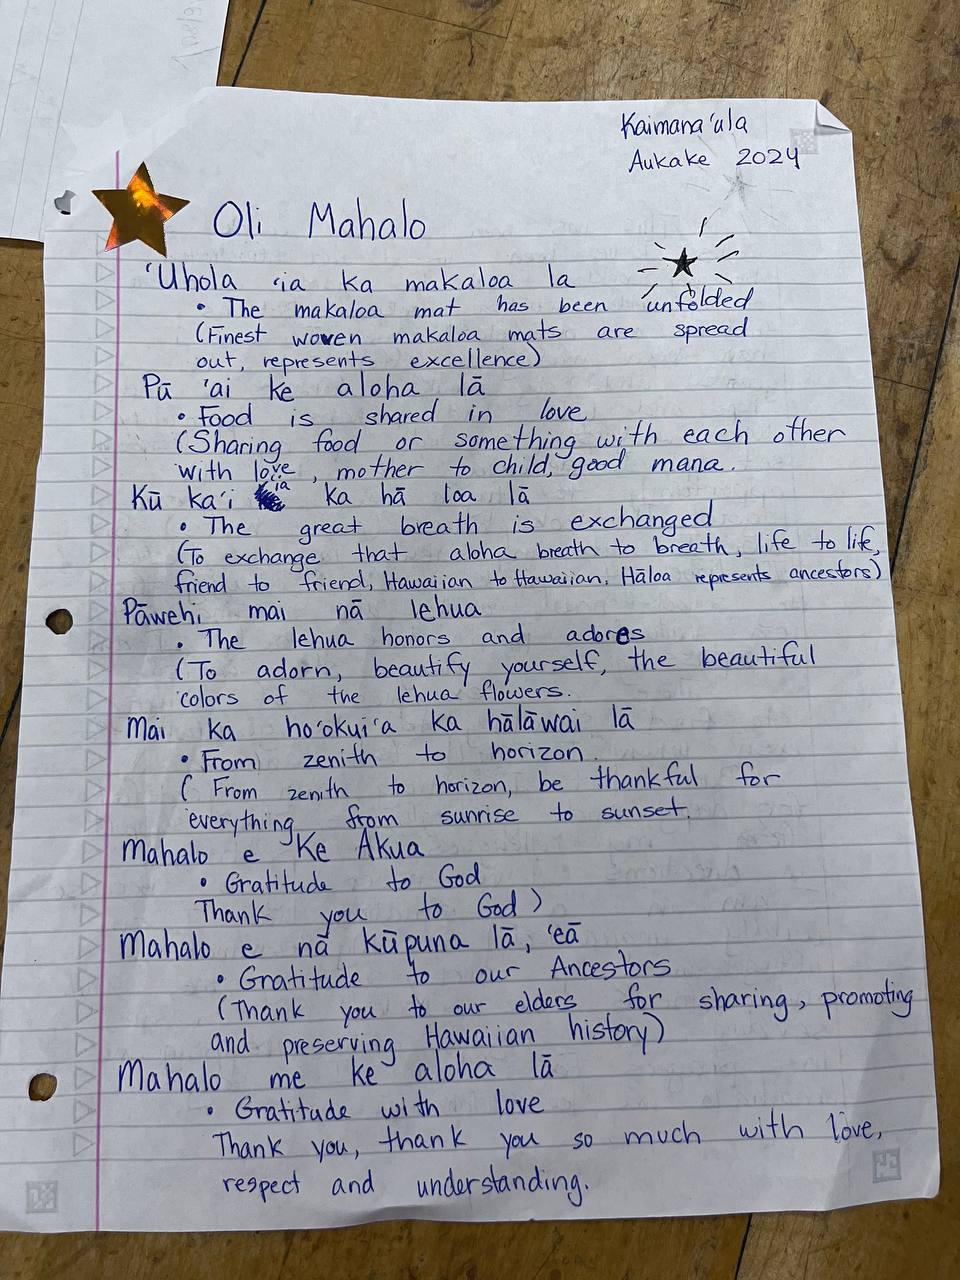 Kaimana'ula
Aukake 2024
Oli Mahalo
'Uhola 'ia ka makaloa la
• The makaloa mat has been unfolded
(Finest woven makaloa mats are spread
out, represents excellence)
Pū 'ai ke aloha lā
• Food is shared in love
(Sharing food or something with each other
with love, mother to child, good mana.
Kū ka'i ia ka hā loa lā
• The great breath is exchanged
(To exchange that aloha breath to breath, life to life,
friend to friend, Hawaiian to Hawaiian, Hāloa represents ancestors)
Pāwehi mai nā lehua
• The lehua honors and adores
(To adorn, beautify yourself, the beautiful
colors of the lehua flowers.
Mai ka ho'okui'a ka hālāwai lā
• From zenith to horizon.
( From zenith to horizon, be thankful for
everything from sunrise to sunset.
Mahalo e Ke Akua
• Gratitude to God
Thank you to God)
Mahalo e nā kūpuna lā, 'eā
• Gratitude to our Ancestors
(Thank you to our elders for sharing, promoting
and preserving Hawaiian history)
Mahalo me ke aloha lā
• Gratitude with love
Thank you, thank you so much with love,
respect and understanding.